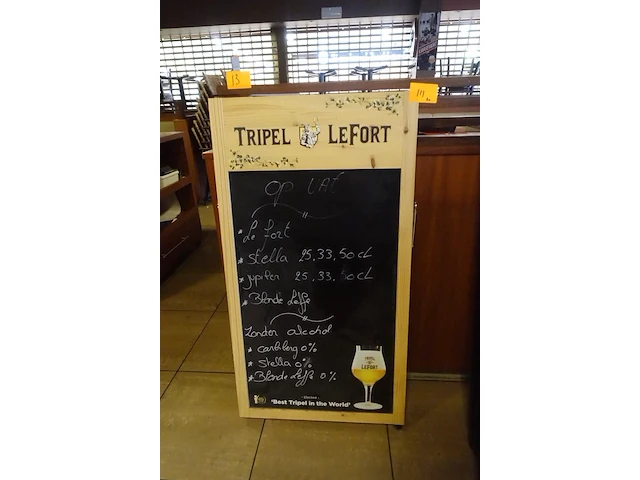 13
TRIPEL LEFORT
op VAT
* Le Fort
* Stella 25,33,50cl
* jupiler 25,33,50cl
* Blonde Leffe
Zonder alcohol
* carlsberg 0%
* Stella 0%
* Blonde Leffe 0%
TRIPEL
LEFORT
'Best Tripel in the World'